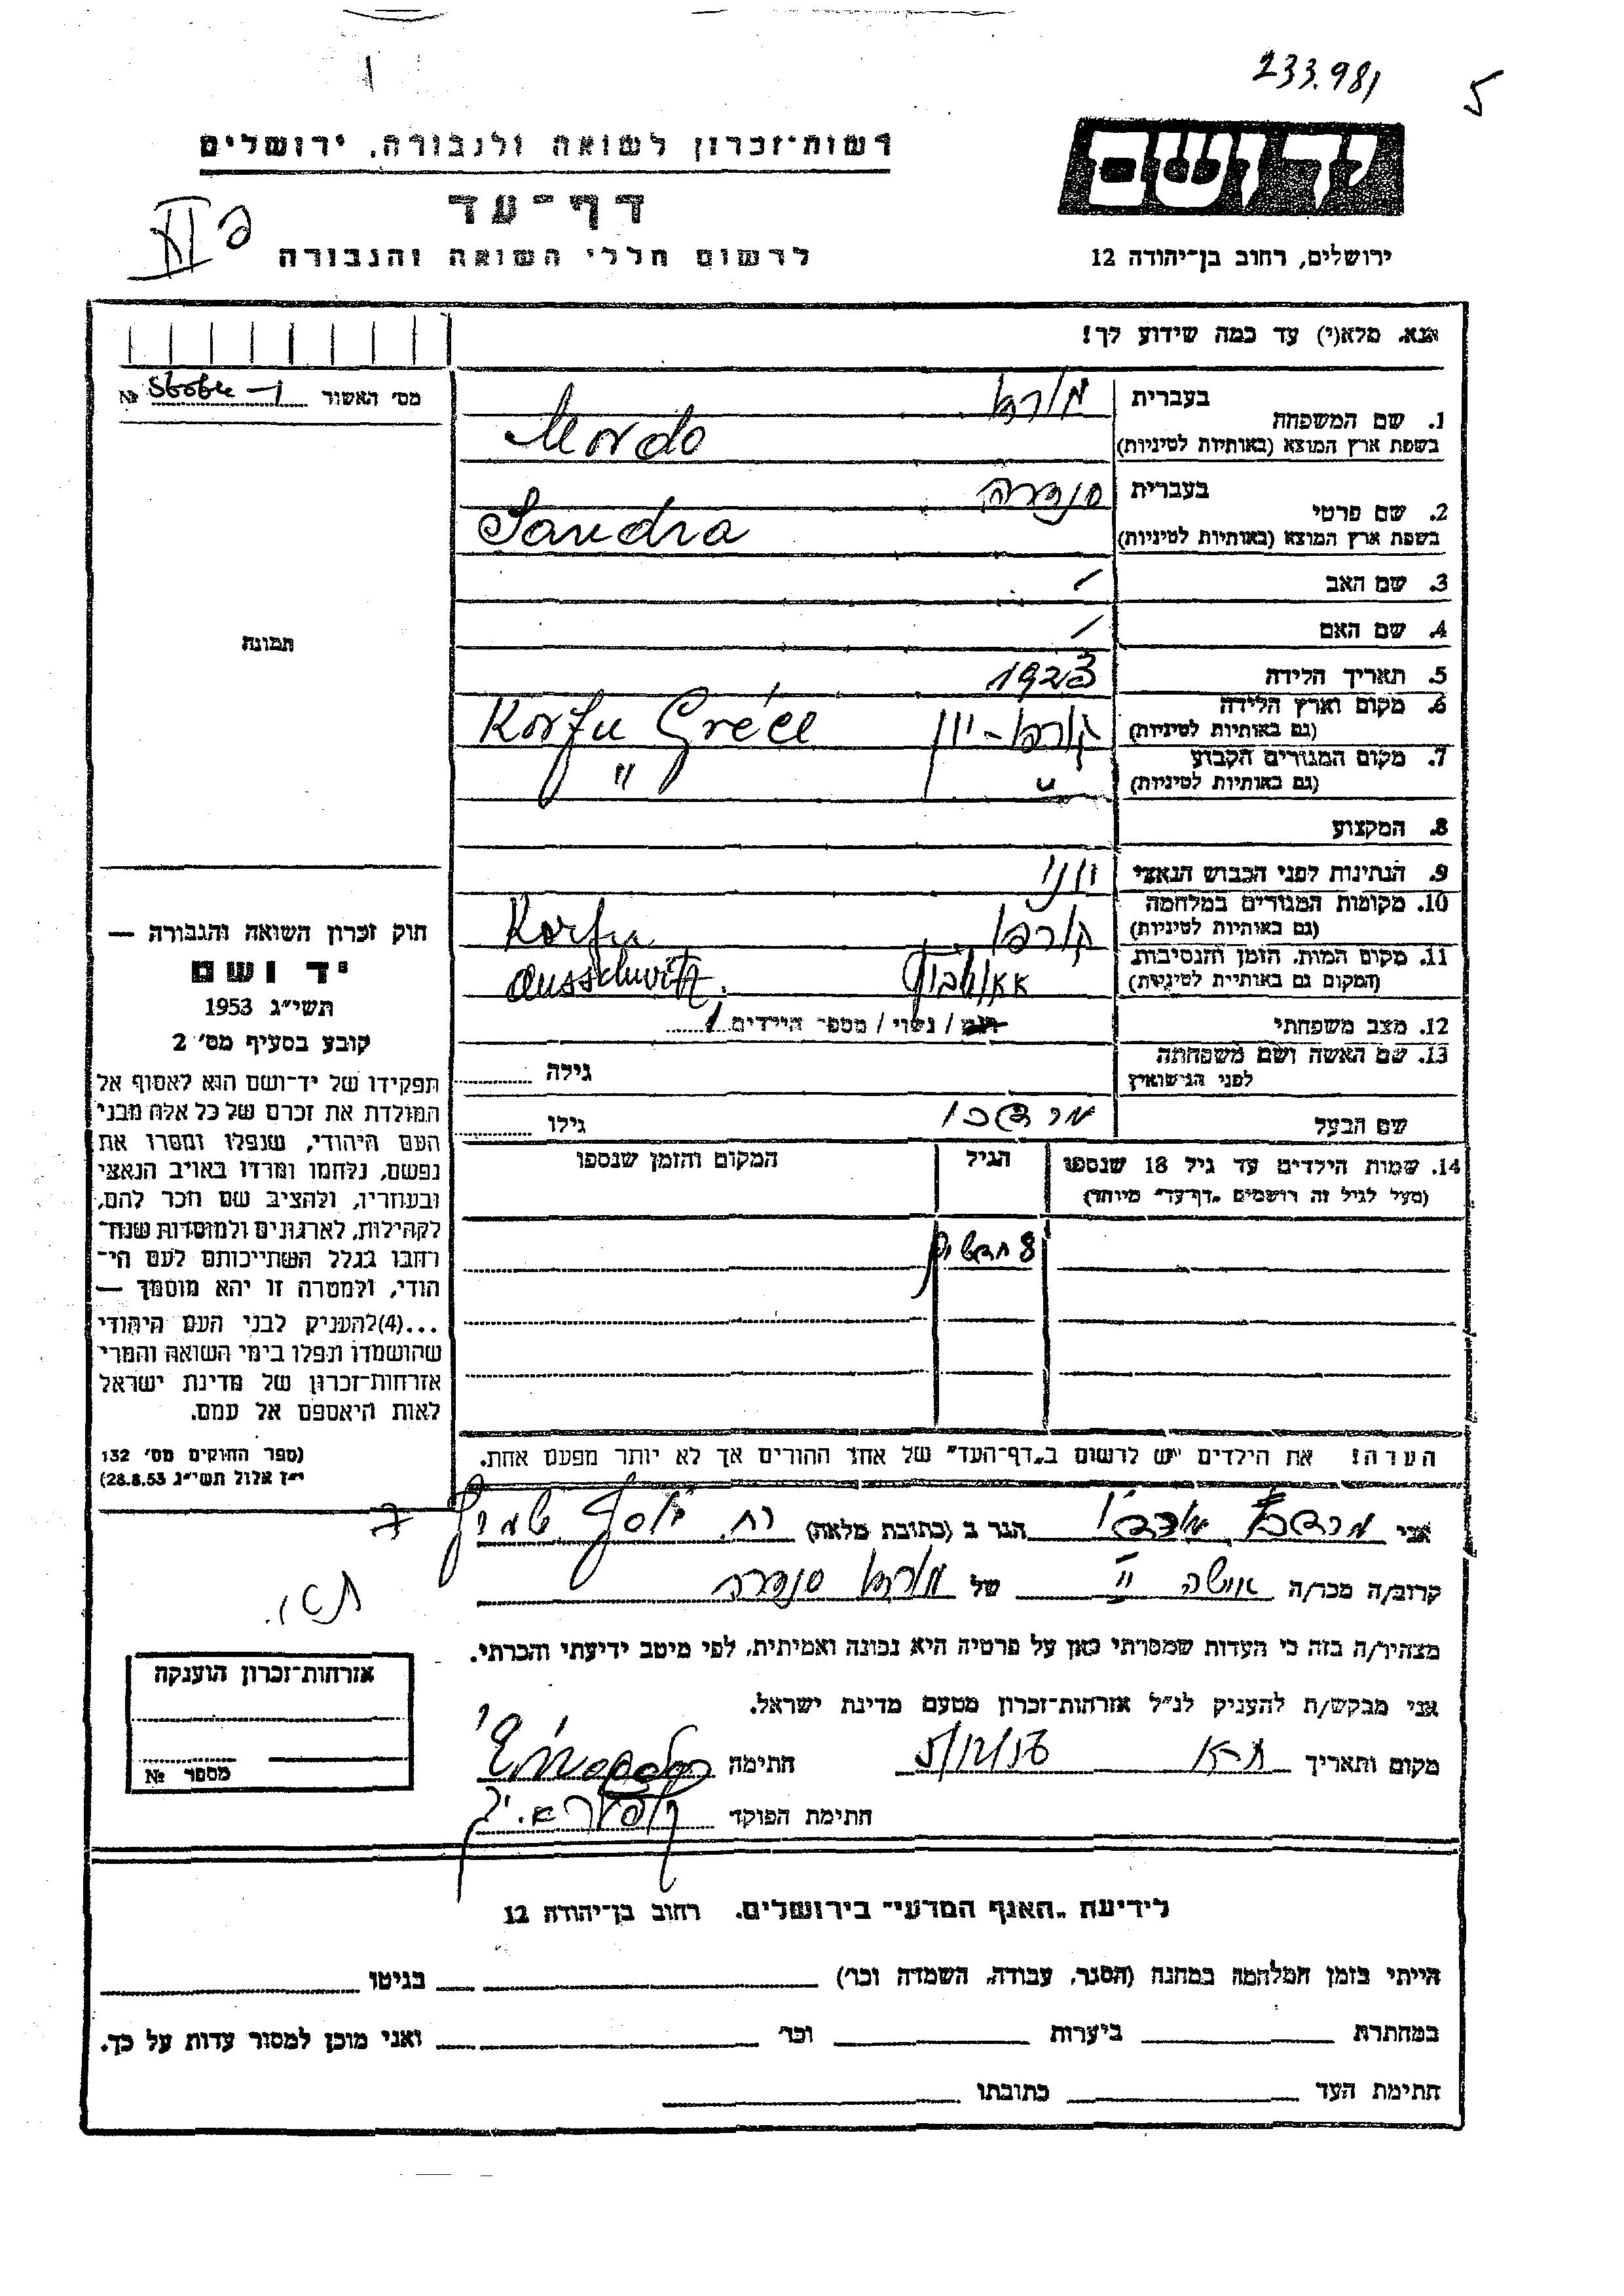 233.981
5
יד ושם
רשות־זכרון לשואה ולגבורה, ירושלים
דף־עד
לרשום חללי השואה והגבורה
ירושלים, רחוב בן־יהודה 12
אנא, מלא(י) עד כמה שידוע לך!
מס׳ האשור
№
1. שם המשפחה
בעברית
מורדו
בשפת ארץ המוצא (באותיות לטיניות)
Mordo
2. שם פרטי
בעברית
סנדרה
בשפת ארץ המוצא (באותיות לטיניות)
Sandra
3. שם האב
4. שם האם
תמונה
5. תאריך הלידה
1923
6. מקום וארץ הלידה
(גם באותיות לטיניות)
קורפו - יון Korfu Gréce
7. מקום המגורים הקבוע
(גם באותיות לטיניות)
" "
8. המקצוע
9. הנתינות לפני הכבוש הנאצי
יוני
10. מקומות המגורים במלחמה
(גם באותיות לטיניות)
קורפו Korfu
11. מקום המות, הזמן והנסיבות
(המקום גם באותיות לטיניות)
Ausschwitz
12. מצב משפחתי
רווק / נשוי / מספר הילדים 1
13. שם האשה ושם משפחתה
לפני הנישואין
גילה
שם הבעל
מרדכי
גילו
14. שמות הילדים עד גיל 18 שנספו
(מעל לגיל זה רושמים "דף־עד" מיוחד)
הגיל
המקום והזמן שנספו
8 חדשים
הערה! את הילדים יש לרשום ב"דף־העד" של אחד ההורים אך לא יותר מפעם אחת.
חוק זכרון השואה והגבורה —
יד ושם
תשי"ג 1953
קובע בסעיף מס׳ 2
תפקידו של יד־ושם הוא לאסוף אל
המולדת את זכרם של כל אלה מבני
העם היהודי, שנפלו ומסרו את
נפשם, נלחמו ומרדו באויב הנאצי
ובעוזריו, ולהציב שם וזכר להם,
לקהילות, לארגונים ולמוסדות שנח־
רבו בגלל השתייכותם לעם הי־
הודי, ולמטרה זו יהא מוסמך —
...(4) להעניק לבני העם היהודי
שהושמדו ונפלו בימי השואה והמרי
אזרחות־זכרון של מדינת ישראל
לאות היאספם אל עמם.
(ספר החוקים מס׳ 132
י"ז אלול תשי"ג 28.8.53)
אני מרדכי הגר ב (כתובת מלאה) רח. יוסף 7
קרוב/ה מכר/ה אישה של מורדו סנדרה
ת"א.
מצהיר/ה בזה כי העדות שמסרתי כאן על פרטיה היא נכונה ואמיתית, לפי מיטב ידיעתי והכרתי.
אני מבקש/ת להעניק לנ"ל אזרחות־זכרון מטעם מדינת ישראל.
מקום ותאריך ת"א 5/12/56 חתימה
חתימת הפוקד
אזרחות־זכרון הוענקה
מספר №
לידיעת "האגף המדעי" בירושלים, רחוב בן־יהודה 12
הייתי בזמן המלחמה במחנה (הסגר, עבודה, השמדה וכו׳) בגיטו
במחתרת ביערות וכו׳ ואני מוכן למסור עדות על כך.
חתימת העד כתובתו